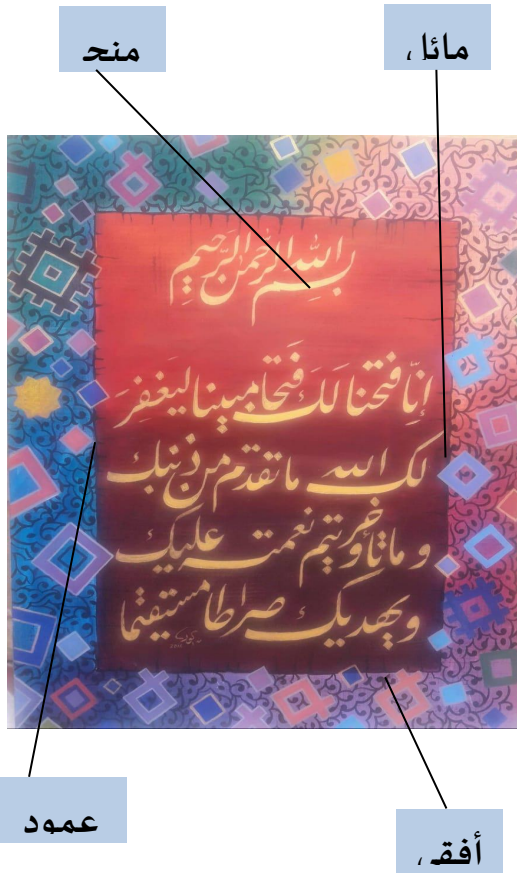 مائل
منحـ
بِسْمِ اللهِ الرَّحْمنِ الرَّحِيمِ
إنّا فتحنا لك فتحا مبينا ليغفر
لك الله ما تقدم من ذنبك
و ما تأخر و يتم نعمته عليك
ويهديك صراطا مستقيما
عمود
أفقـ